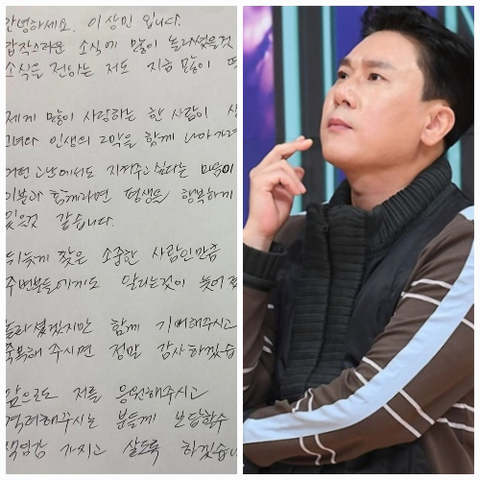 안녕하세요. 이상민 입니다.
갑작스러운 소식에 많이 놀라셨을것
소식을 전하는 저도 지금 많이 떨
제게 많이 사랑하는 한 사람이 생
그녀와 인생의 2막을 함께 나아가려
어떤 고난에서도 지켜주고 싶다는 마음이
이분과 함께라면 평생을 행복하게
있을것 같습니다.
뒤늦게 찾은 소중한 사람인만큼
주변분들에게도 알리는것이 늦어
놀라셨겠지만 함께 기뻐해주시고
축복해 주시면 정말 감사하겠습
앞으로도 저를 응원해주시고
격려해주시는 분들께 보답할수
책임감 가지고 살도록 하겠습니